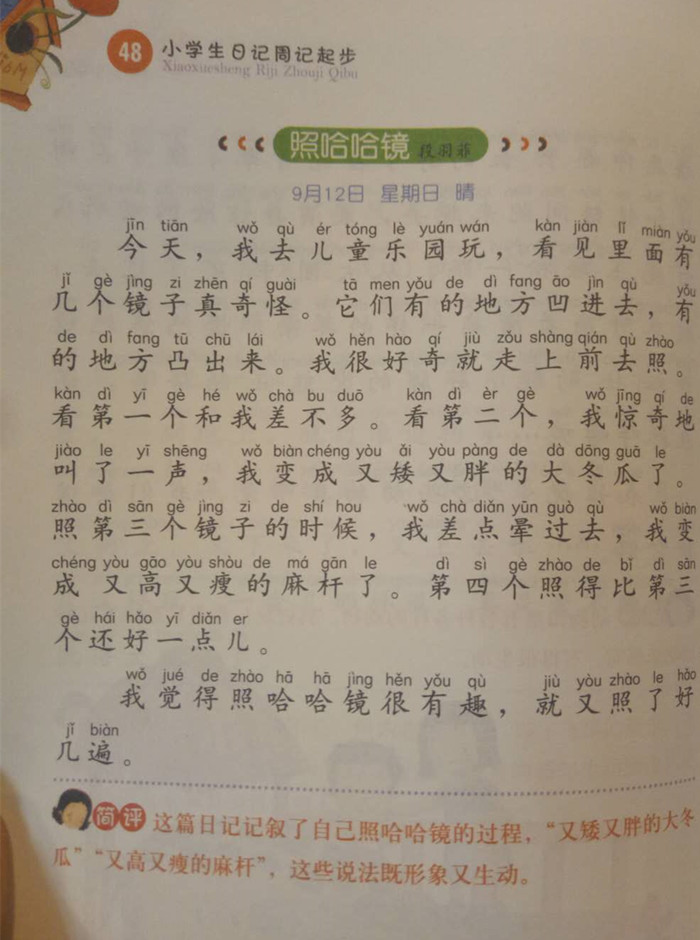 48 小学生日记周记起步
Xiaoxuesheng Riji Zhouji Qibu
照哈哈镜 段羽菲
9月12日 星期日 晴
jīn tiān wǒ qù ér tóng lè yuán wán kàn jiàn lǐ miàn yǒu
今天，我去儿童乐园玩，看见里面有
jǐ gè jìng zi zhēn qí guài tā men yǒu de dì fang āo jìn qù yǒu
几个镜子真奇怪。它们有的地方凹进去，有
de dì fang tū chū lái wǒ hěn hào qí jiù zǒu shàng qián qù zhào
的地方凸出来。我很好奇就走上前去照。
kàn dì yī gè hé wǒ chà bu duō kàn dì èr gè wǒ jīng qí de
看第一个和我差不多。看第二个，我惊奇地
jiào le yī shēng wǒ biàn chéng yòu ǎi yòu pàng de dà dōng guā le
叫了一声，我变成又矮又胖的大冬瓜了。
zhào dì sān gè jìng zi de shí hou wǒ chà diǎn yūn guò qù wǒ biàn
照第三个镜子的时候，我差点晕过去，我变
chéng yòu gāo yòu shòu de má gān le dì sì gè zhào de bǐ dì sān
成又高又瘦的麻杆了。第四个照得比第三
gè hái hǎo yī diǎn er
个还好一点儿。
wǒ jué de zhào hā hā jìng hěn yǒu qù jiù yòu zhào le hǎo
我觉得照哈哈镜很有趣，就又照了好
jǐ biàn
几遍。
简评 这篇日记记叙了自己照哈哈镜的过程，“又矮又胖的大冬
瓜”“又高又瘦的麻杆”，这些说法既形象又生动。